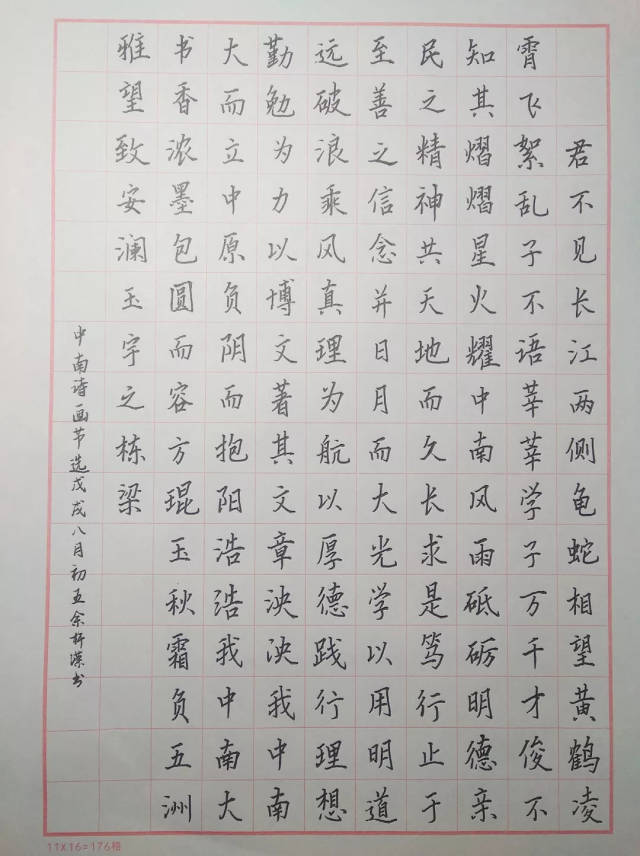 君不见长江两侧龟蛇相望黄鹤凌
霄飞絮乱子不语莘莘学子万千才俊不
知其熠熠星火耀中南风雨砥砺明德亲
民之精神共天地而久长求是笃行止于
至善之信念并日月而大光学以用明道
远破浪乘风真理为航以厚德践行理想
勤勉为力以博文著其文章泱泱我中南
大而立中原负阴而抱阳浩浩我中南大
书香浓墨包圆而容方琨玉秋霜负五洲
雅望致安澜玉宇之栋梁
中南诗画节选戊戌八月初五余 书
11X16=176格